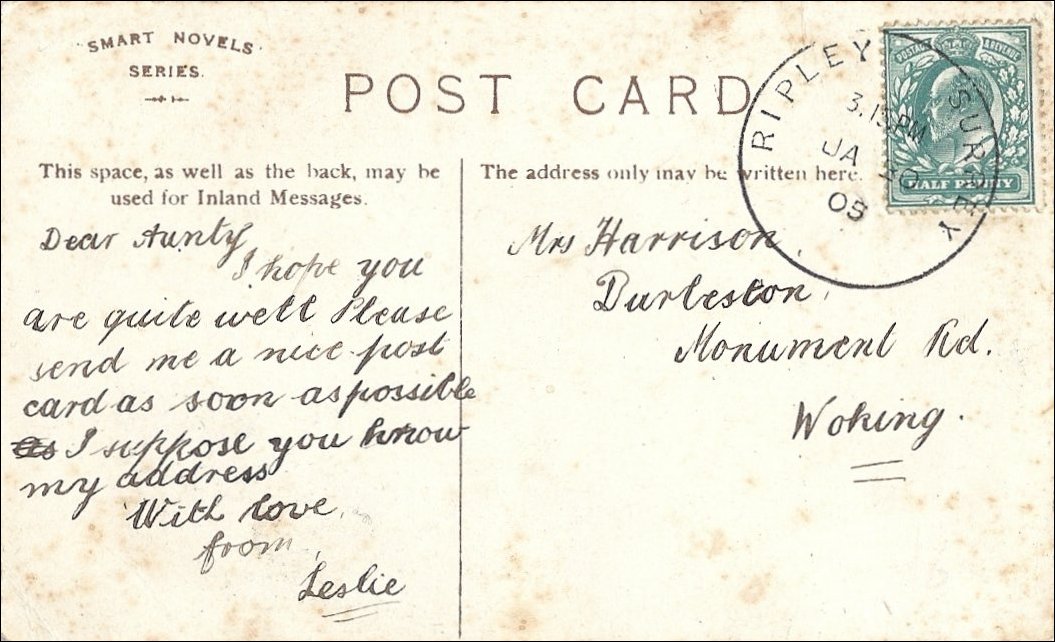 SMART NOVELS
SERIES.
POST CARD
This space, as well as the back, may be
used for Inland Messages.
The address only may be written here.
RIPLEY
SURREY
3.15PM
JA
POSTAGE & REVENUE
HALF PENNY
Dear Aunty
I hope you
are quite well Please
send me a nice post
card as soon as possible
as I suppose you know
my address
With love
from
Leslie
Mrs Harrison,
Durleston,
Monument Rd.
Woking.